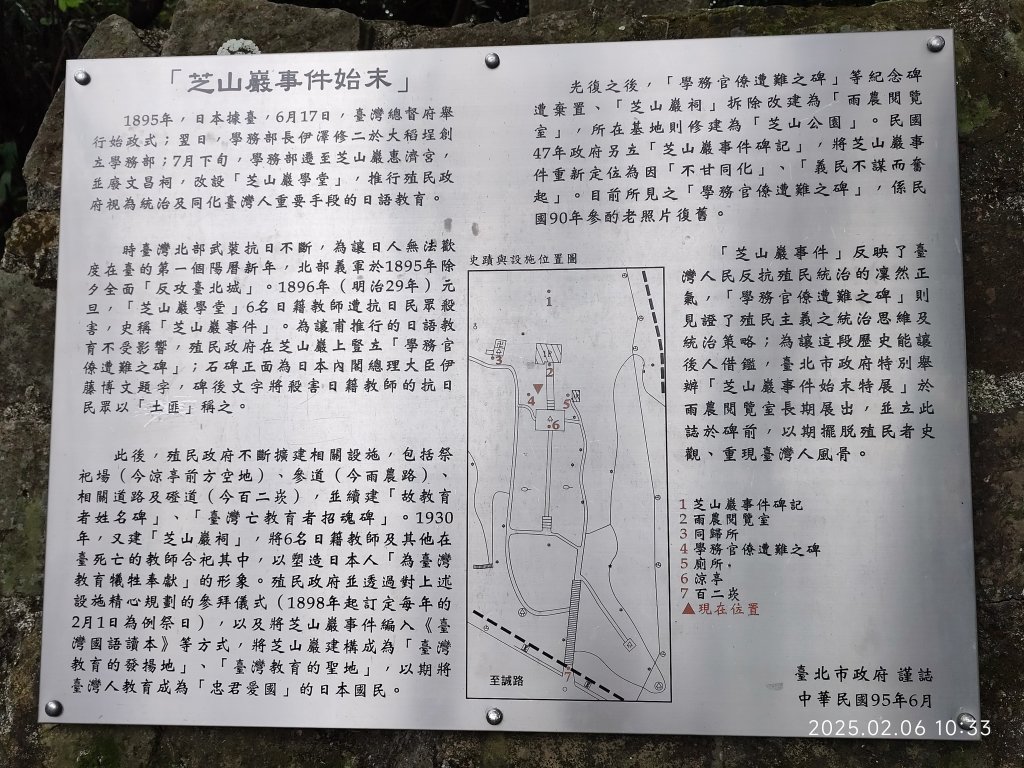 「芝山巖事件始末」
1895年，日本據臺，6月17日，臺灣總督府舉
行始政式；翌日，學務部長伊澤修二於大稻埕創
立學務部；7月下旬，學務部遷至芝山巖惠濟宮，
並廢文昌祠，改設「芝山巖學堂」，推行殖民政
府視為統治及同化臺灣人重要手段的日語教育。
時臺灣北部武裝抗日不斷，為讓日人無法歡
度在臺的第一個陽曆新年，北部義軍於1895年除
夕全面「反攻臺北城」。1896年（明治29年）元
旦，「芝山巖學堂」6名日籍教師遭抗日民眾殺
害，史稱「芝山巖事件」。為讓甫推行的日語教
育不受影響，殖民政府在芝山巖上豎立「學務官
僚遭難之碑」；石碑正面為日本內閣總理大臣伊
藤博文題字，碑後文字將殺害日籍教師的抗日
民眾以「土匪」稱之。
此後，殖民政府不斷擴建相關設施，包括祭
祀場（今涼亭前方空地）、參道（今雨農路）、
相關道路及磴道（今百二崁），並續建「故教育
者姓名碑」、「臺灣亡教育者招魂碑」。1930
年，又建「芝山巖祠」，將6名日籍教師及其他在
臺死亡的教師合祀其中，以塑造日本人「為臺灣
教育犧牲奉獻」的形象。殖民政府並透過對上述
設施精心規劃的參拜儀式（1898年起訂定每年的
2月1日為例祭日），以及將芝山巖事件編入《臺
灣國語讀本》等方式，將芝山巖建構成為「臺灣
教育的發揚地」、「臺灣教育的聖地」，以期將
臺灣人教育成為「忠君愛國」的日本國民。
光復之後，「學務官僚遭難之碑」等紀念碑
遭棄置、「芝山巖祠」拆除改建為「雨農閱覽
室」，所在基地則修建為「芝山公園」。民國
47年政府另立「芝山巖事件碑記」，將芝山巖事
件重新定位為因「不甘同化」、「義民不謀而奮
起」。目前所見之「學務官僚遭難之碑」，係民
國90年參酌老照片復舊。
「芝山巖事件」反映了臺
灣人民反抗殖民統治的凜然正
氣，「學務官僚遭難之碑」則
見證了殖民主義之統治思維及
統治策略；為讓這段歷史能讓
後人借鑑，臺北市政府特別舉
辦「芝山巖事件始末特展」於
雨農閱覽室長期展出，並立此
誌於碑前，以期擺脫殖民者史
觀、重現臺灣人風骨。
史蹟與設施位置圖
1
2
3
4
5
6
7
至誠路
1 芝山巖事件碑記
2 雨農閱覽室
3 同歸所
4 學務官僚遭難之碑
5 廁所
6 涼亭
7 百二崁
▲現在位置
臺北市政府 謹誌
中華民國95年6月
2025.02.06 10:33